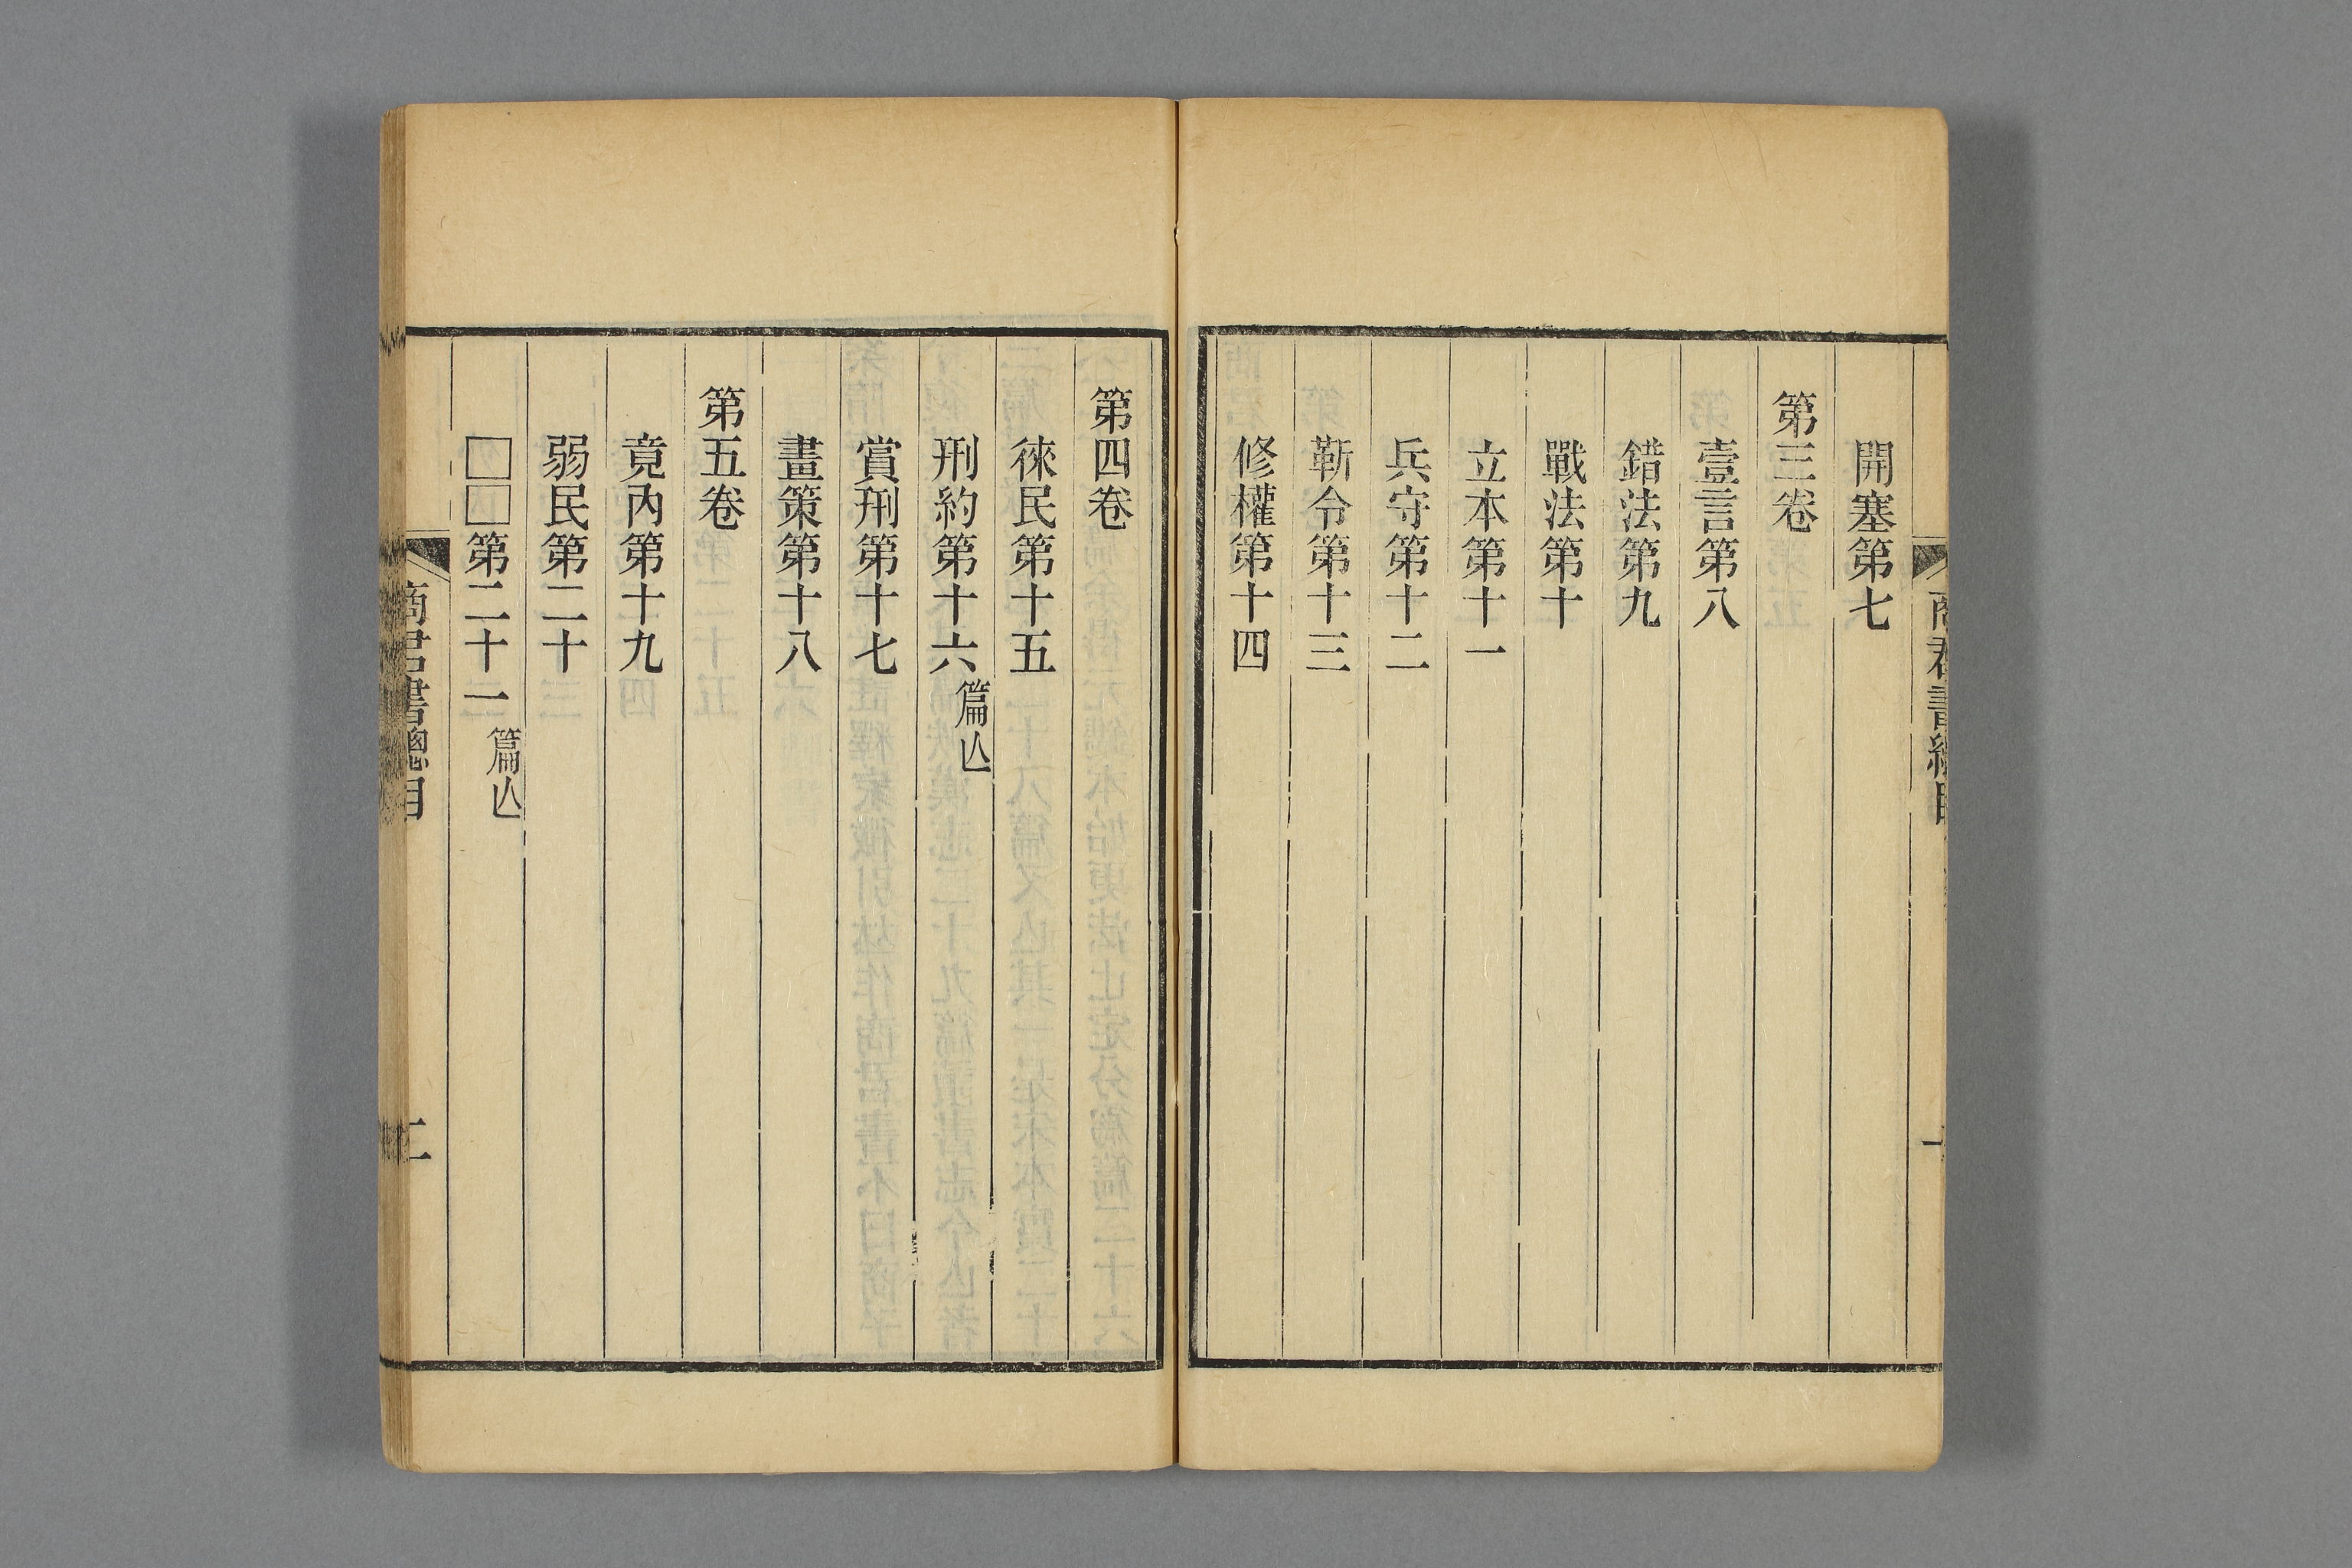 開塞第七
第三卷
壹言第八
錯法第九
戰法第十
立本第十一
兵守第十二
靳令第十三
修權第十四
第四卷
徠民第十五
刑約第十六篇亾
賞刑第十七
畫策第十八
第五卷
竟內第十九
弱民第二十
□□第二十一篇亾
商君書總目
二